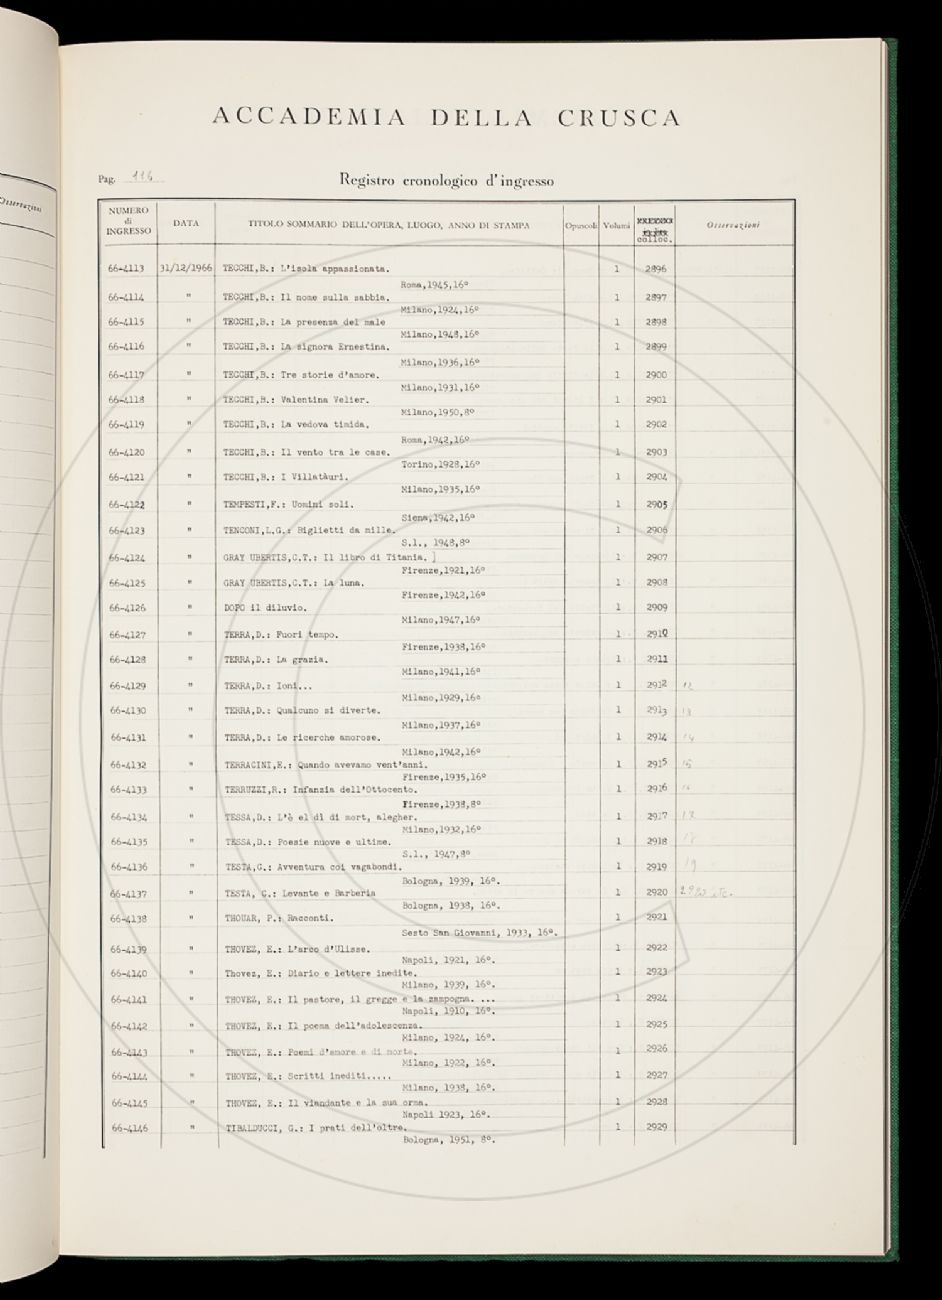 Osservazioni
ACCADEMIA DELLA CRUSCA
Pag. 116
Registro cronologico d'ingresso
NUMERO di INGRESSO DATA TITOLO SOMMARIO DELL'OPERA, LUOGO, ANNO DI STAMPA Opuscoli Volumi colloc. Osservazioni
66-4113 31/12/1966 TECCHI,B.: L'isola appassionata. 1 2896
Roma,1945,16º
66-4114 " TECCHI,B.: Il nome sulla sabbia. 1 2897
Milano,1924,16º
66-4115 " TECCHI,B.: La presenza del male 1 2898
Milano,1948,16º
66-4116 " TECCHI,B.: La signora Ernestina. 1 2899
Milano,1936,16º
66-4117 " TECCHI,B.: Tre storie d'amore. 1 2900
Milano,1931,16º
66-4118 " TECCHI,B.: Valentina Velier. 1 2901
Milano,1950,8º
66-4119 " TECCHI,B.: La vedova timida. 1 2902
Roma,1942,16º
66-4120 " TECCHI,B.: Il vento tra le case. 1 2903
Torino,1928,16º
66-4121 " TECCHI,B.: I Villatàuri. 1 2904
Milano,1935,16º
66-4122 " TEMPESTI,F.: Uomini soli. 1 2905
Siena,1942,16º
66-4123 " TENCONI,L.G.: Biglietti da mille. 1 2906
S.l., 1948,8º
66-4124 " GRAY UBERTIS,C.T.: Il libro di Titania. ] 1 2907
Firenze,1921,16º
66-4125 " GRAY UBERTIS,C.T.: La luna. 1 2908
Firenze,1942,16º
66-4126 " DOPO il diluvio. 1 2909
Milano,1947,16º
66-4127 " TERRA,D.: Fuori tempo. 1 2910
Firenze,1938,16º
66-4128 " TERRA,D.: La grazia. 1 2911
Milano,1941,16º
66-4129 " TERRA,D.: Ioni... 1 2912 12
Milano,1929,16º
66-4130 " TERRA,D.: Qualcuno si diverte. 1 2913 13
Milano,1937,16º
66-4131 " TERRA,D.: Le ricerche amorose. 1 2914 14
Milano,1942,16º
66-4132 " TERRACINI,E.: Quando avevamo vent'anni. 1 2915 15
Firenze,1935,16º
66-4133 " TERRUZZI,R.: Infanzia dell'Ottocento. 1 2916
Firenze,1938,8º
66-4134 " TESSA,D.: L'è el dì di mort, alegher. 1 2917 17
Milano,1932,16º
66-4135 " TESSA,D.: Poesie nuove e ultime. 1 2918
S.l., 1947,8º
66-4136 " TESTA,G.: Avventura coi vagabondi. 1 2919 19
Bologna, 1939, 16º.
66-4137 " TESTA, G.: Levante e Barberia 1 2920 2920 etc.
Bologna, 1938, 16º.
66-4138 " THOUAR, P.: Racconti. 1 2921
Sesto San Giovanni, 1933, 16º.
66-4139 " THOVEZ, E.: L'arco d'Ulisse. 1 2922
Napoli, 1921, 16º.
66-4140 " Thovez, E.: Diario e lettere inedite. 1 2923
Milano, 1939, 16º.
66-4141 " THOVEZ, E.: Il pastore, il gregge e la zampogna. ... 1 2924
Napoli, 1910, 16º.
66-4142 " THOVEZ, E.: Il poema dell'adolescenza. 1 2925
Milano, 1924, 16º.
66-4143 " THOVEZ, E.: Poemi d'amore e di morte. 1 2926
Milano, 1922, 16º.
66-4144 " THOVEZ, E.: Scritti inediti..... 1 2927
Milano, 1938, 16º.
66-4145 " THOVEZ, E.: Il viandante e la sua orma. 1 2928
Napoli 1923, 16º.
66-4146 " TIBALDUCCI, G.: I prati dell'oltre. 1 2929
Bologna, 1951, 8º.